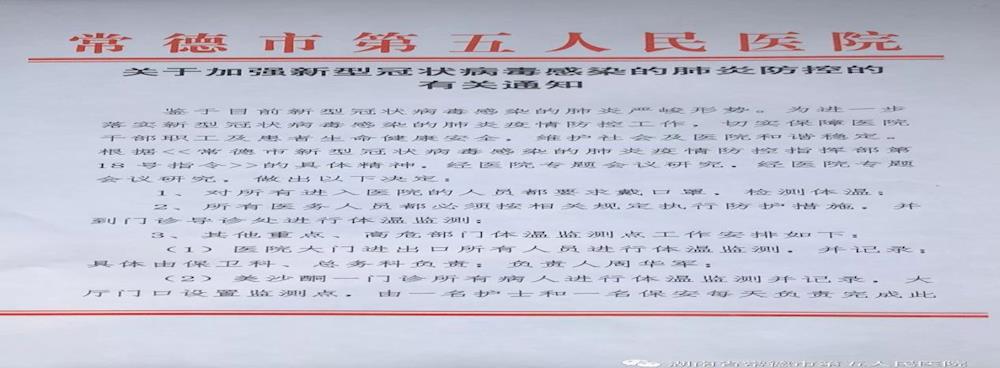 常德市第五人民医院
关于加强新型冠状病毒感染的肺炎防控的
有关通知
鉴于目前新型冠状病毒感染的肺炎严峻形势。为进一步
落实新型冠状病毒感染的肺炎疫情防控工作，切实保障医院
干部职工及患者生命健康安全，维护社会及医院和谐稳定。
根据<<常德市新型冠状病毒感染的肺炎疫情防控指挥部第
18号指令>>的具体精神，经医院专题会议研究，经医院专题
会议研究，做出以下决定：
1、对所有进入医院的人员都要求戴口罩，检测体温；
2、所有医务人员都必须按相关规定执行防护措施，并
到门诊导诊处进行体温监测；
3、其他重点、高危部门体温监测点工作安排如下：
（1）医院大门进出口所有人员进行体温监测，并记录；
具体由保卫科、总务科负责；负责人周华军；
（2）美沙酮一门诊所有病人进行体温监测并记录，大
厅门口设置监测点，由一名护士和一名保安每天负责完成此
湖南省常德市第五人民医院